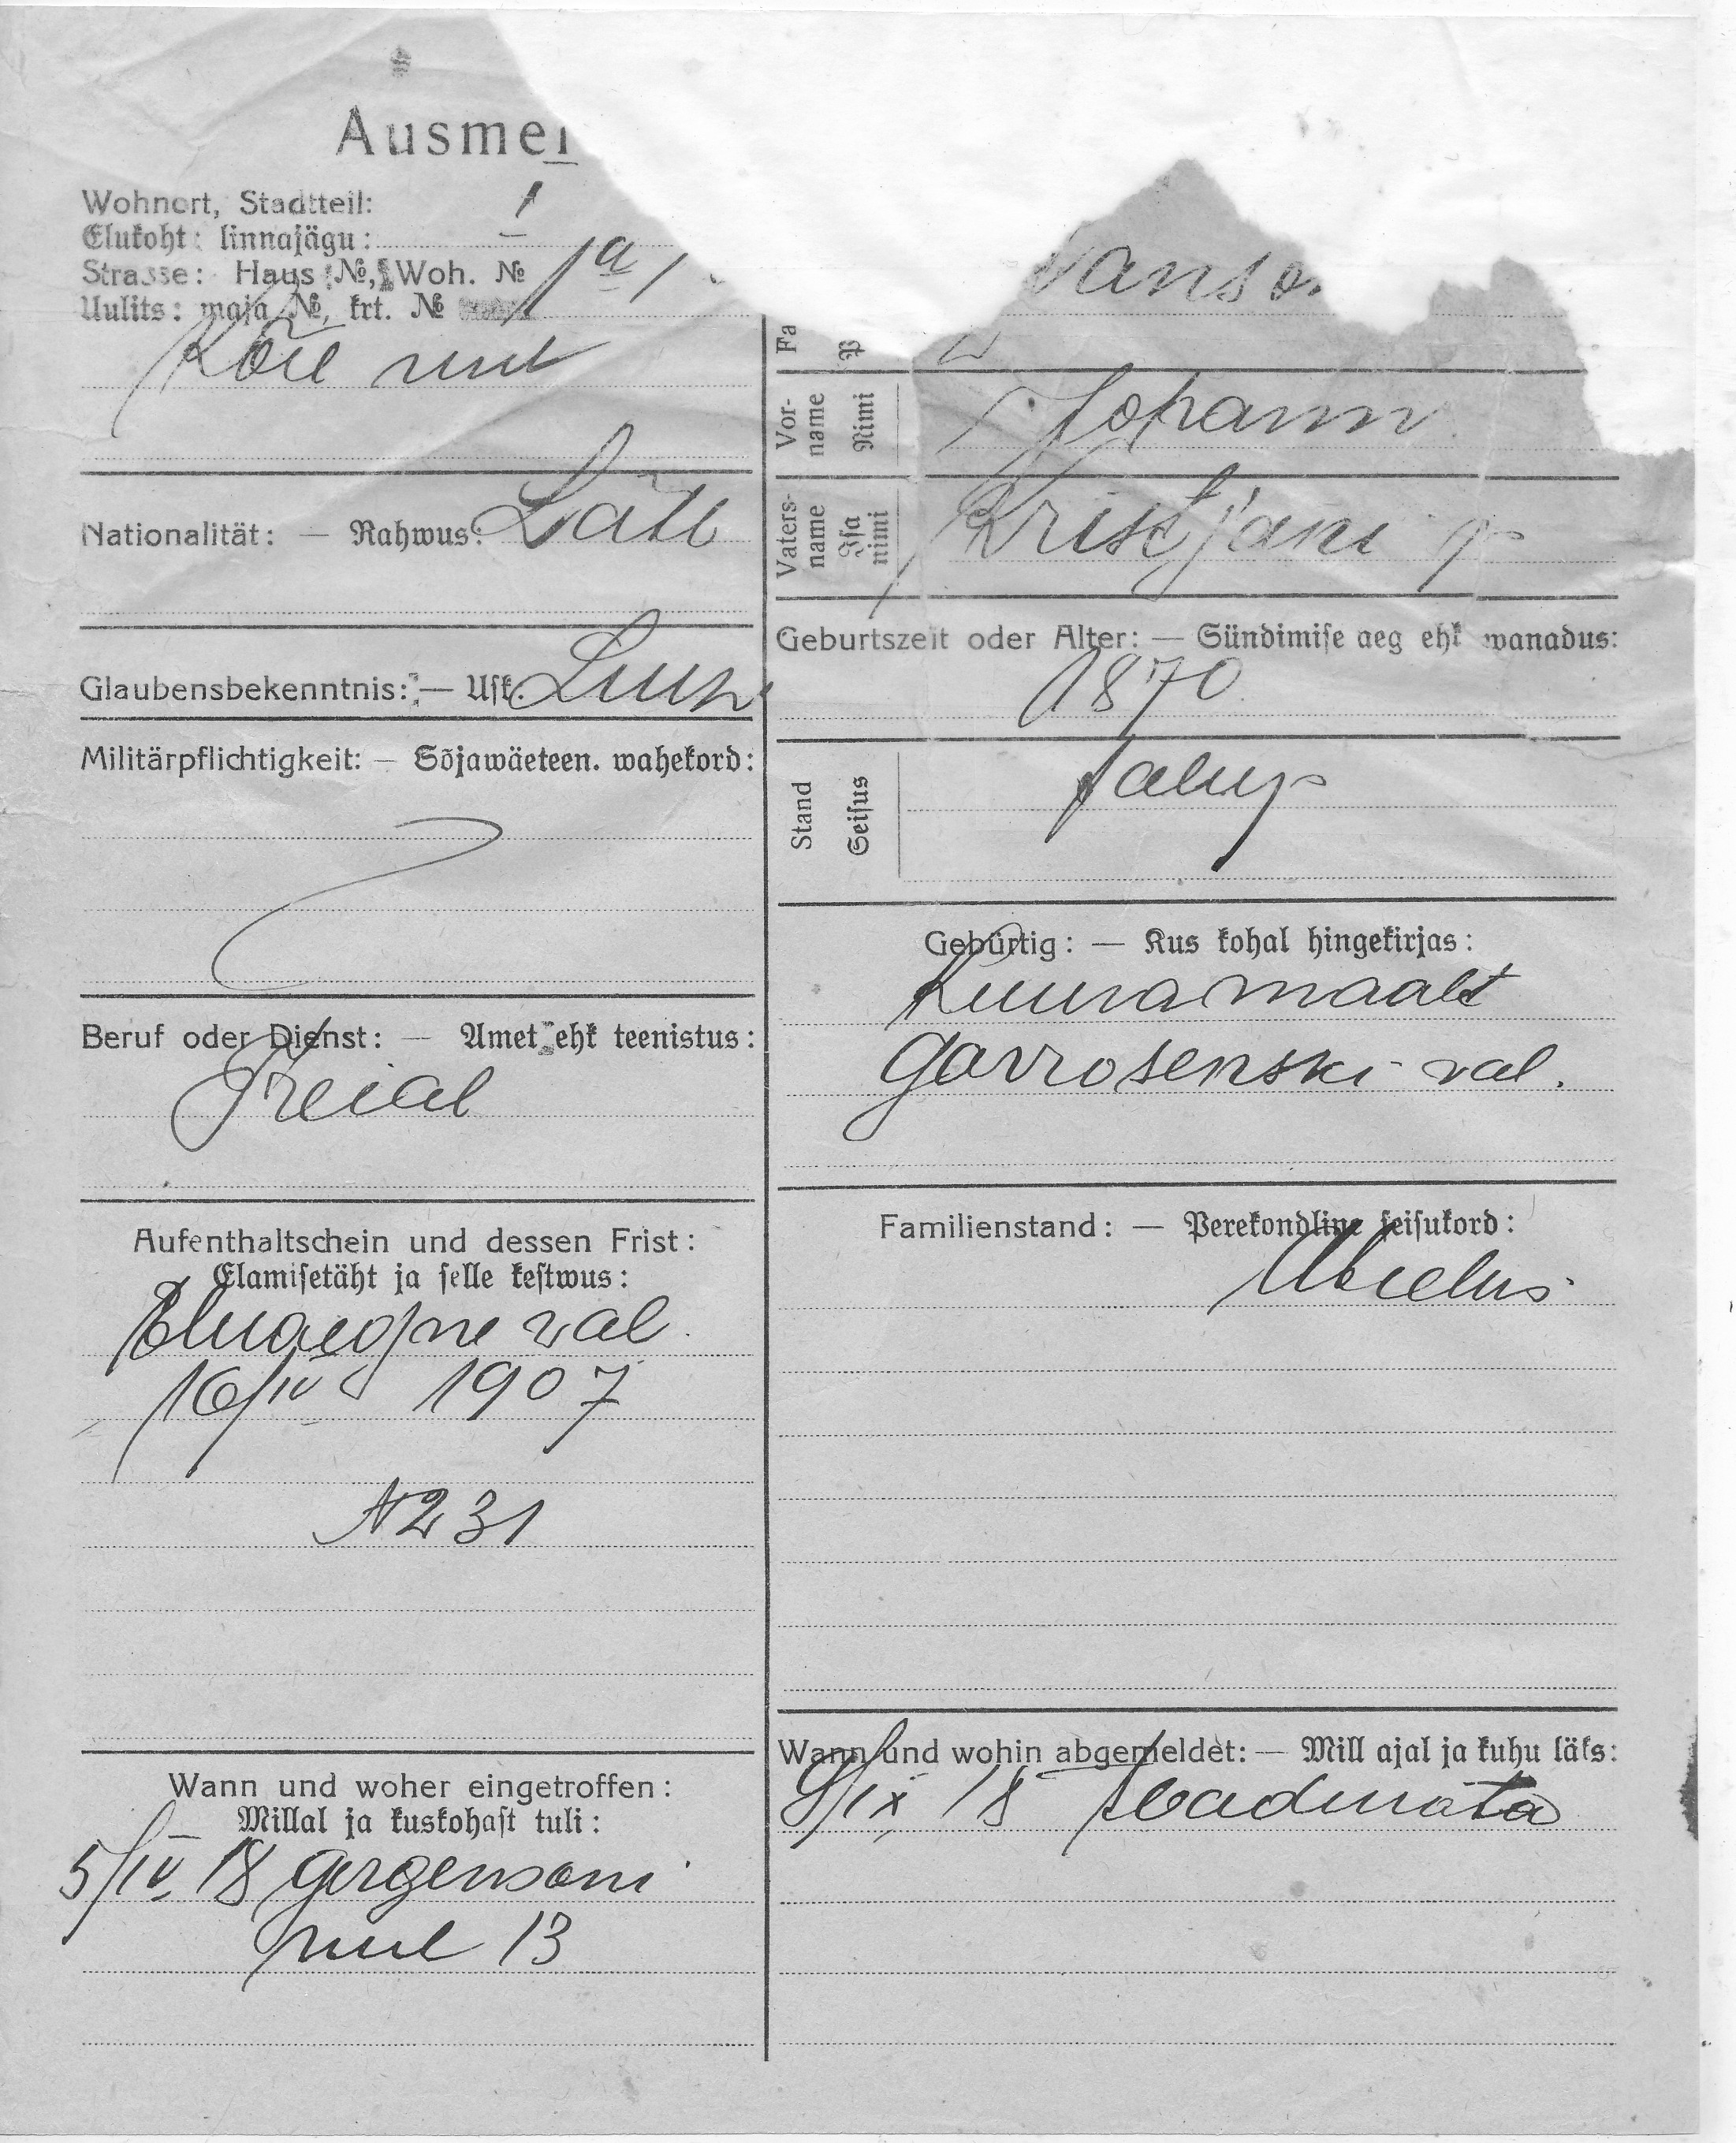 Ausmei
Wohnort, Stadtteil: 1
Elukoht: linnajägu:
Strasse: Haus №, Woh. № 1a
Uulits: maja №, krt. №
Nationalität: — Rahwus: Lätl
Glaubensbekenntnis: — Usk. Luth
Militärpflichtigkeit: — Sõjawäeteen. wahekord:
Beruf oder Dienst: — Amet ehk teenistus:
Treial
Aufenthaltschein und dessen Frist:
Elamisetäht ja selle kestwus:
val.
16/IV 1907
N 231
Wann und woher eingetroffen:
Millal ja kuskohast tuli:
5/IV 18 Gergensoni
uul 13
Fa
P
anso
Vor-
name
Nimi
Johann
Vaters-
name
Isa
nimi
Kristjani p
Geburtszeit oder Alter: — Sündimise aeg ehk wanadus:
1870
Stand
Seisus
talup
Gebürtig: — Kus kohal hingekirjas:
Kuuramaalt
Garrosenski val.
Familienstand: — Perekondline seisukord:
Abielus
Wann und wohin abgemeldet: — Mill ajal ja kuhu läks:
/IX 18 teadmata